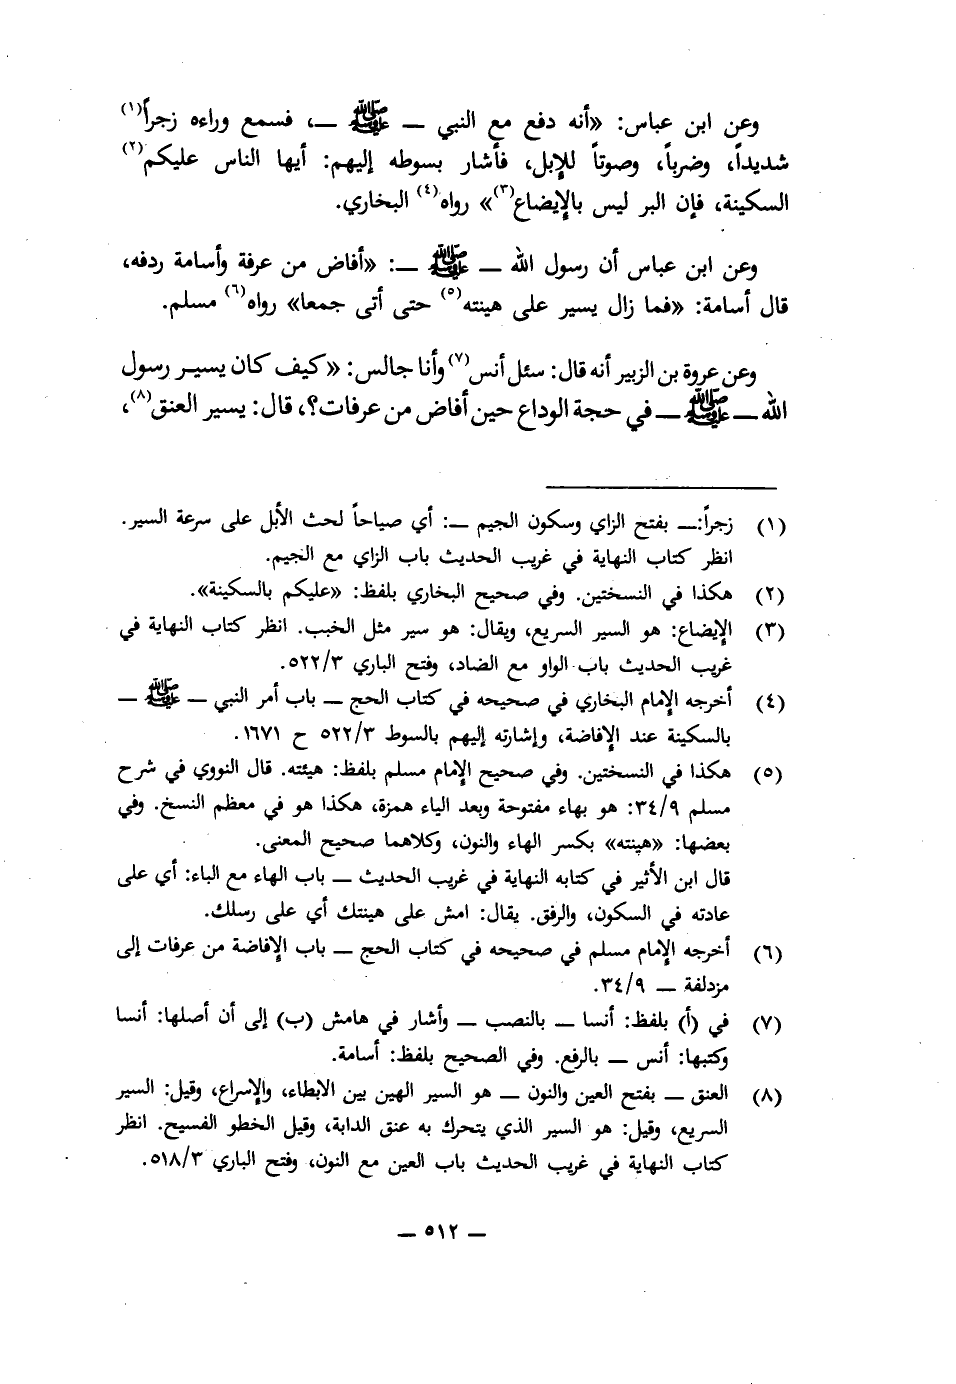 وعن ابن عباس: «أنه دفع مع النبي — ﷺ —، فسمع وراءه زجراً(١)
شديداً، وضرباً، وصوتاً للإبل، فأشار بسوطه إليهم: أيها الناس عليكم(٢)
السكينة، فإن البر ليس بالإيضاع(٣)» رواه(٤) البخاري.
وعن ابن عباس أن رسول الله — ﷺ —: «أفاض من عرفة وأسامة ردفه،
قال أسامة: «فما زال يسير على هينته(٥) حتى أتى جمعا» رواه(٦) مسلم.
وعن عروة بن الزبير أنه قال: سئل أنس(٧) وأنا جالس: «كيف كان يسير رسول
الله — ﷺ — في حجة الوداع حين أفاض من عرفات؟، قال: يسير العنق(٨)،
(١) زجراً:— بفتح الزاي وسكون الجيم —: أي صياحاً لحث الأبل على سرعة السير.
انظر كتاب النهاية في غريب الحديث باب الزاي مع الجيم.
(٢) هكذا في النسختين. وفي صحيح البخاري بلفظ: «عليكم بالسكينة».
(٣) الإيضاع: هو السير السريع، ويقال: هو سير مثل الخبب. انظر كتاب النهاية في
غريب الحديث باب الواو مع الضاد، وفتح الباري ٥٢٢/٣.
(٤) أخرجه الإمام البخاري في صحيحه في كتاب الحج — باب أمر النبي — ﷺ —
بالسكينة عند الإفاضة، وإشارته إليهم بالسوط ٥٢٢/٣ ح ١٦٧١.
(٥) هكذا في النسختين. وفي صحيح الإمام مسلم بلفظ: هيئته. قال النووي في شرح
مسلم ٣٤/٩: هو بهاء مفتوحة وبعد الياء همزة، هكذا هو في معظم النسخ. وفي
بعضها: «هينته» بكسر الهاء والنون، وكلاهما صحيح المعنى.
قال ابن الأثير في كتابه النهاية في غريب الحديث — باب الهاء مع الباء: أي على
عادته في السكون، والرفق. يقال: امش على هينتك أي على رسلك.
(٦) أخرجه الإمام مسلم في صحيحه في كتاب الحج — باب الإفاضة من عرفات إلى
مزدلفة — ٣٤/٩.
(٧) في (أ) بلفظ: أنسا — بالنصب — وأشار في هامش (ب) إلى أن أصلها: أنسا
وكتبها: أنس — بالرفع. وفي الصحيح بلفظ: أسامة.
(٨) العنق — بفتح العين والنون — هو السير الهين بين الابطاء، والإسراع، وقيل: السير
السريع، وقيل: هو السير الذي يتحرك به عنق الدابة، وقيل الخطو الفسيح. انظر
كتاب النهاية في غريب الحديث باب العين مع النون، وفتح الباري ٥١٨/٣.
— ٥١٢ —